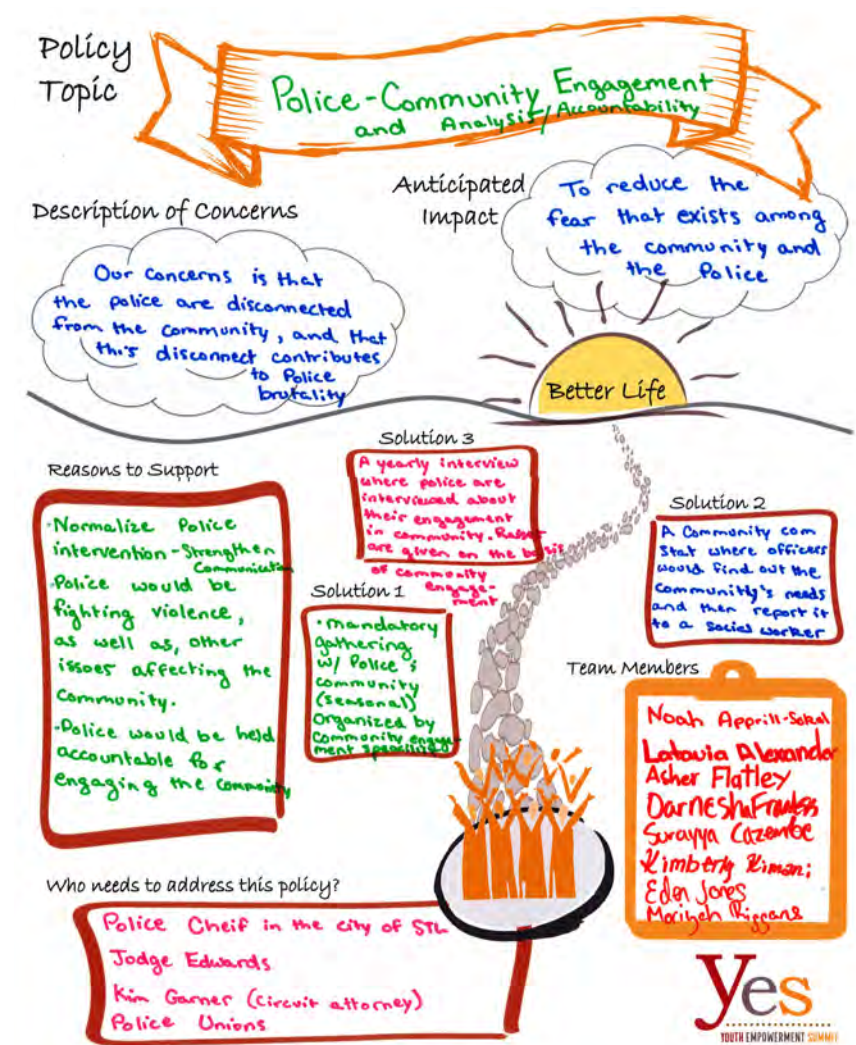 Policy
Topic
Police-Community Engagement
and Analysis/Accountability
Description of Concerns
Our concerns is that
the police are disconnected
from the community, and that
this disconnect contributes
to Police
brutality
Anticipated
Impact
To reduce the
fear that exists among
the community and
the Police
Better Life
Reasons to Support
-Normalize Police
intervention-Strengthen
Communication
-Police would be
fighting violence,
as well as, other
issues affecting the
community.
-Police would be held
accountable for
engaging the community
Solution 3
A yearly interview
where police are
interviewed about
their engagement
in community. Raises
are given on the basis
of community
engage-
ment
Solution 1
• mandatory
gathering
w/ Police &
community
(seasonal)
Organized by
community engage-
ment
Solution 2
A Community com
Stat where officers
would find out the
community's needs
and then report it
to a social worker
Team Members
Noah Apprill-Sokol
Latavia Alexander
Asher Flatley
Darnesha
Surayya Cazembe
Kimberly Kimani
Eden Jones
Riggans
Who needs to address this policy?
Police Cheif in the city of STL
Jodge Edwards
Kim Garner (circuit attorney)
Police Unions
yes
YOUTH EMPOWERMENT SUMMIT